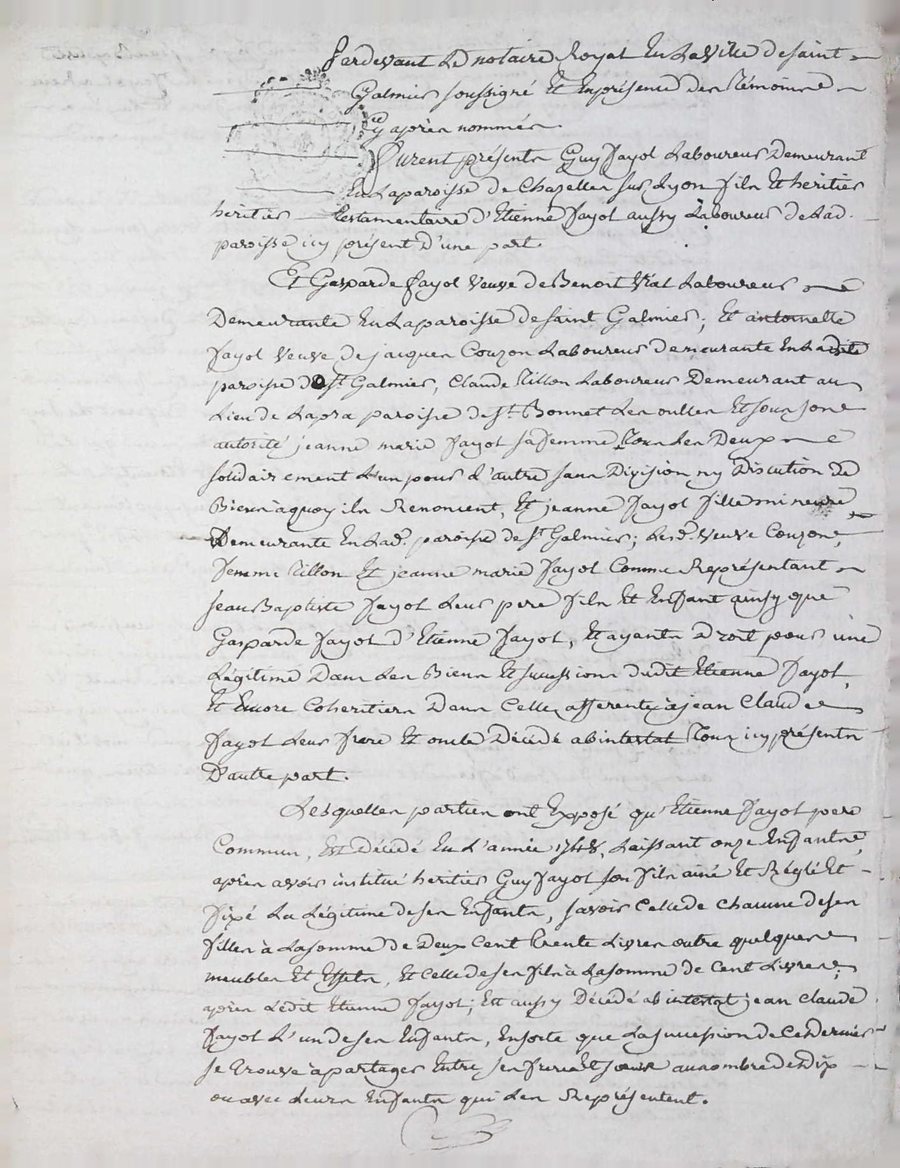 Pardevant Le notaire Royal En La Ville de Saint
Galmier soussigné Et En présence des Témoins
cy après nommés
Furent présents Guy Fayol Laboureur Demeurant
En La paroisse de Chazelles sur Lyon fils Et héritier
héritier testamentaire d'Etienne Fayol aussy Laboureur de Lad.
paroisse icy présent D'une part.
Et Gasparde Fayol Veuve de Benoit Vial Laboureur
Demeurante En La paroisse de Saint Galmier; Et antoinette
Fayol Veuve de jacques Couzon Laboureur demeurante En Ladite
paroisse de St. Galmier, Claude Tillon Laboureur Demeurant au
Lieu de Lapra paroisse de St. Bonnet Les oulles Et sous son
autorité jeanne marie Fayol sa femme Tous Les Deux
solidairement L'un pour L'autre sans Division ny Discution de
Biens à quoy ils Renoncent, Et jeanne Fayol fille mineure
Demeurante En Lad. paroisse de St. Galmier; Les d. Veuve Couzon,
femme Tillon Et jeanne marie Fayol Comme Représentant
Jean Baptiste Fayol Leur pere fils Et Enfant ainsy que
Gasparde Fayol d'Etienne Fayol, Et ayants Droit pour une
Légitime Dans Les Biens Et succession dudit Etienne Fayol,
Et Encore Cohéritiers Dans Celle afferente à jean Claude
Fayol Leur frere Et oncle Décédé abintestat Tous icy présents
D'autre part.
Lesquelles parties ont Exposé qu'Etienne Fayol pere
Commun, Est Décédé En L'année 1748, Laissant onze Enfants,
après avoir institué héritier Guy Fayol son fils ainé Et Réglé Et
fixé La Légitime de ses Enfants, savoir Celle de Chacune de ses
filles à La somme de Deux Cent trente Livres outre quelques
meubles Et Effets, Et Celle de ses fils à La somme de Cent Livres,
après Ledit Etienne Fayol; Est aussy Décédé abintestat jean Claude
Fayol L'un de ses Enfants, Ensorte que La succession de Ce dernier
se trouve à partager Entre ses freres Et sœurs au nombre de dix
ou avec Leurs Enfants qui Les Représentent.